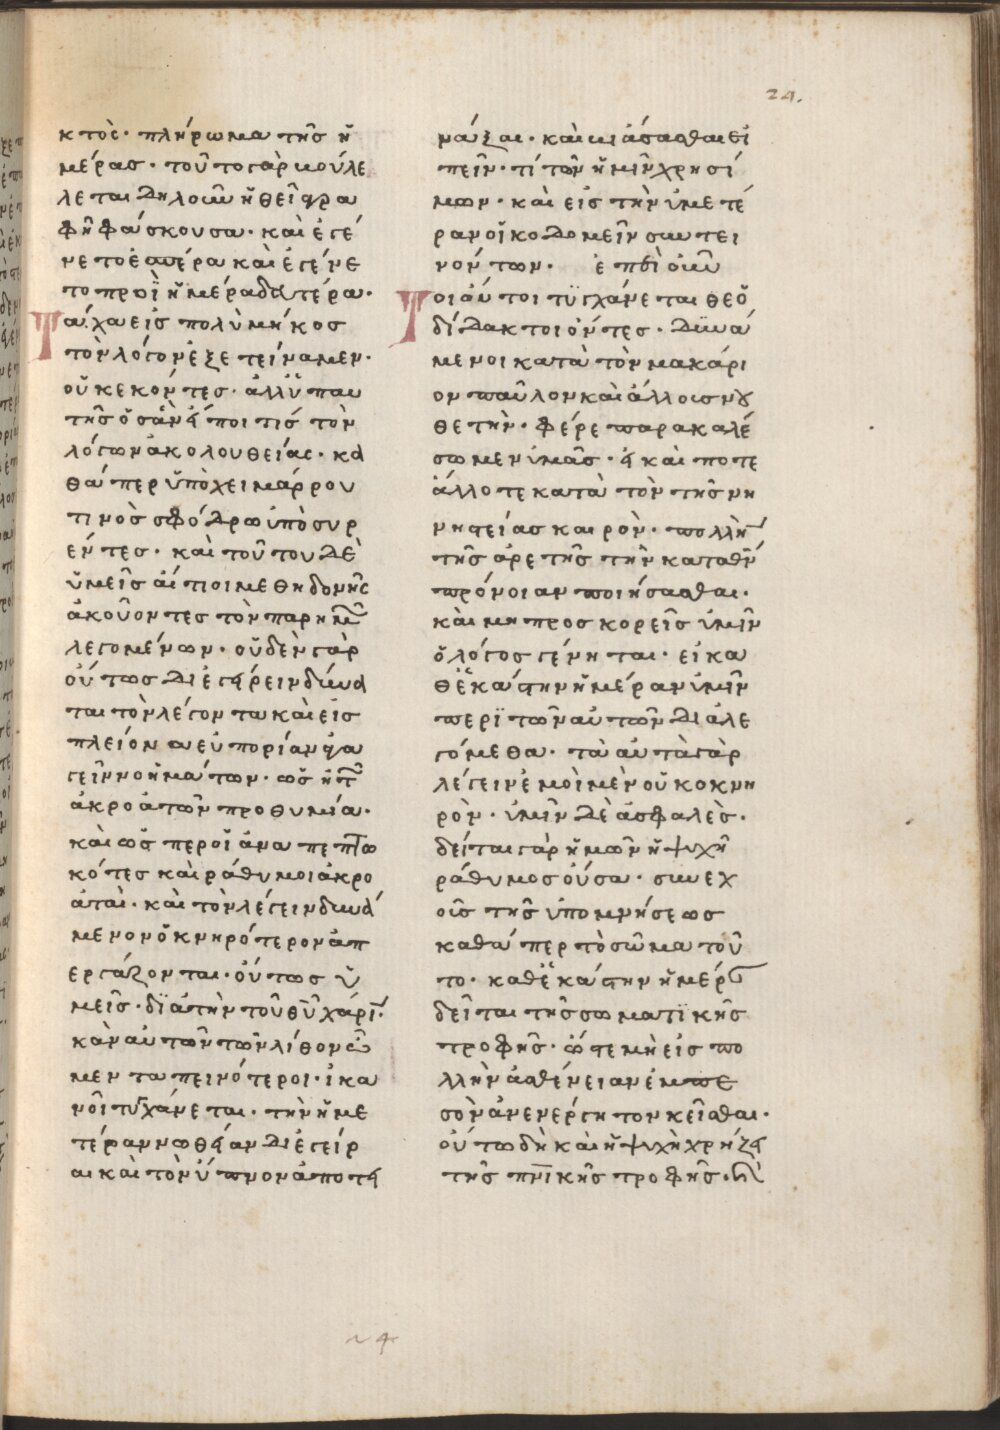 24.
κτὸς· πλήρωμα τῆς ἡ
μέρας· τοῦτο γὰρ μούλε
λεται δηλοῦν ἡ θεῖα γρα
φὴ φάσκουσα· καὶ ἐγέ
νετο ἑσπέρα καὶ ἐγένε
το πρωῒ ἡμέρα δευτέρα·
Τάχα εἰς πολὺ μῆκος
τὸν λόγον ἐξετείναμεν·
οὐχ ἑκόντες· ἀλλ' ὑπ' αυ
τῆς
λόγων ἀκολουθείας· κα
θάπερ ὑπὸ χειμάρρου
τινὸς σφόδρῳ ὑποσυρ
έντες· καὶ τούτου δὲ
ὑμεῖς αἴτιοι μεθ' ηδονῆς
ἀκούοντες τὸν παρ' ἡμῶν
λεγομένων· οὐδὲν γὰρ
οὕτως διεγείρειν δύνα
ται τὸν λέγοντα καὶ εἰς
πλείονα εὐπορίαν ἀγα
γεῖν νοημάτων· ὡς ἡ τῶν
ἀκροατῶν προθυμία·
καὶ ὡς περ οἱ ἀναπεπτω
κότες καὶ ράθυμοι ἀκρο
αταὶ· καὶ τὸν λέγειν δυνά
μενον ὀκνηρότερον ἀπ
εργάζονται· οὕτως ὑ
μεῖς· διὰ τὴν τοῦ θῦ χάριν·
κἂν αὐτῶν τῶν λίθων ὦ
μεν ταπεινότεροι· ἱκα
νοὶ τυγχάνεται· τὴν ἡμε
τέραν νωθείαν διεγεῖρ
αι καὶ τὸν ὕπνον ἀποτι
νάξαι· καὶ βιάσασθαι εἰ
πεῖν· τί τῶν ἡμῖν χρησί
μων· καὶ εἰς τὴν ὑμετέ
ραν οἰκοδομεῖν συντει
νόντων· ἐπεὶ οὖν
Τοιαῦτοι τυγχάνεται θεο
δίδακτοι ὄντες· δυνά
μενοι κατὰ τὸν μακάρι
ον παῦλον καὶ ἄλλοις νου
θετὴν· φέρε παρακαλέ
σωμεν ὑμᾶς· εἰ καὶ ποτε
ἄλλοτε κατὰ τὸν τῆς νη
νηστείας καιρὸν· πολλὴν
τῆς ἀρετῆς τὴν κατὰ θν
πρόνοιαν ποιήσασθαι·
καὶ μη προσκορεῖς ὑμῖν
ὁ λόγος γένηται· εἰ κα
θἑκάστην ἡμέραν ὑμῖν
περὶ τῶν αὐτῶν διαλε
γόμεθα· τὰ αὐτὰ γὰρ
λέγειν ἐμοὶ μὲν οὐκ ὀκνη
ρὸν· ὑμῖν δὲ ἀσφαλὲς·
δεῖται γὰρ ἡμῶν ἡ ψυχὴ
ράθυμος οὖσα· συνεχ
οῦς τῆς ὑπομνήσεως
καθάπερ τὸ σῶμα τοῦ
το· καθἑκάστην ἡμέραν
δεῖται τῆς σωματικῆς
τροφῆς· ὥστε μὴ εἰς πο
λλὴν ἀσθένειαν ἐμπε
σὸν ἀνενέργητον κεῖσθαι·
οὕτω δὴ καὶ ἡ ψυχὴ χρήζει
τῆς πνικῆς τροφῆς·
24